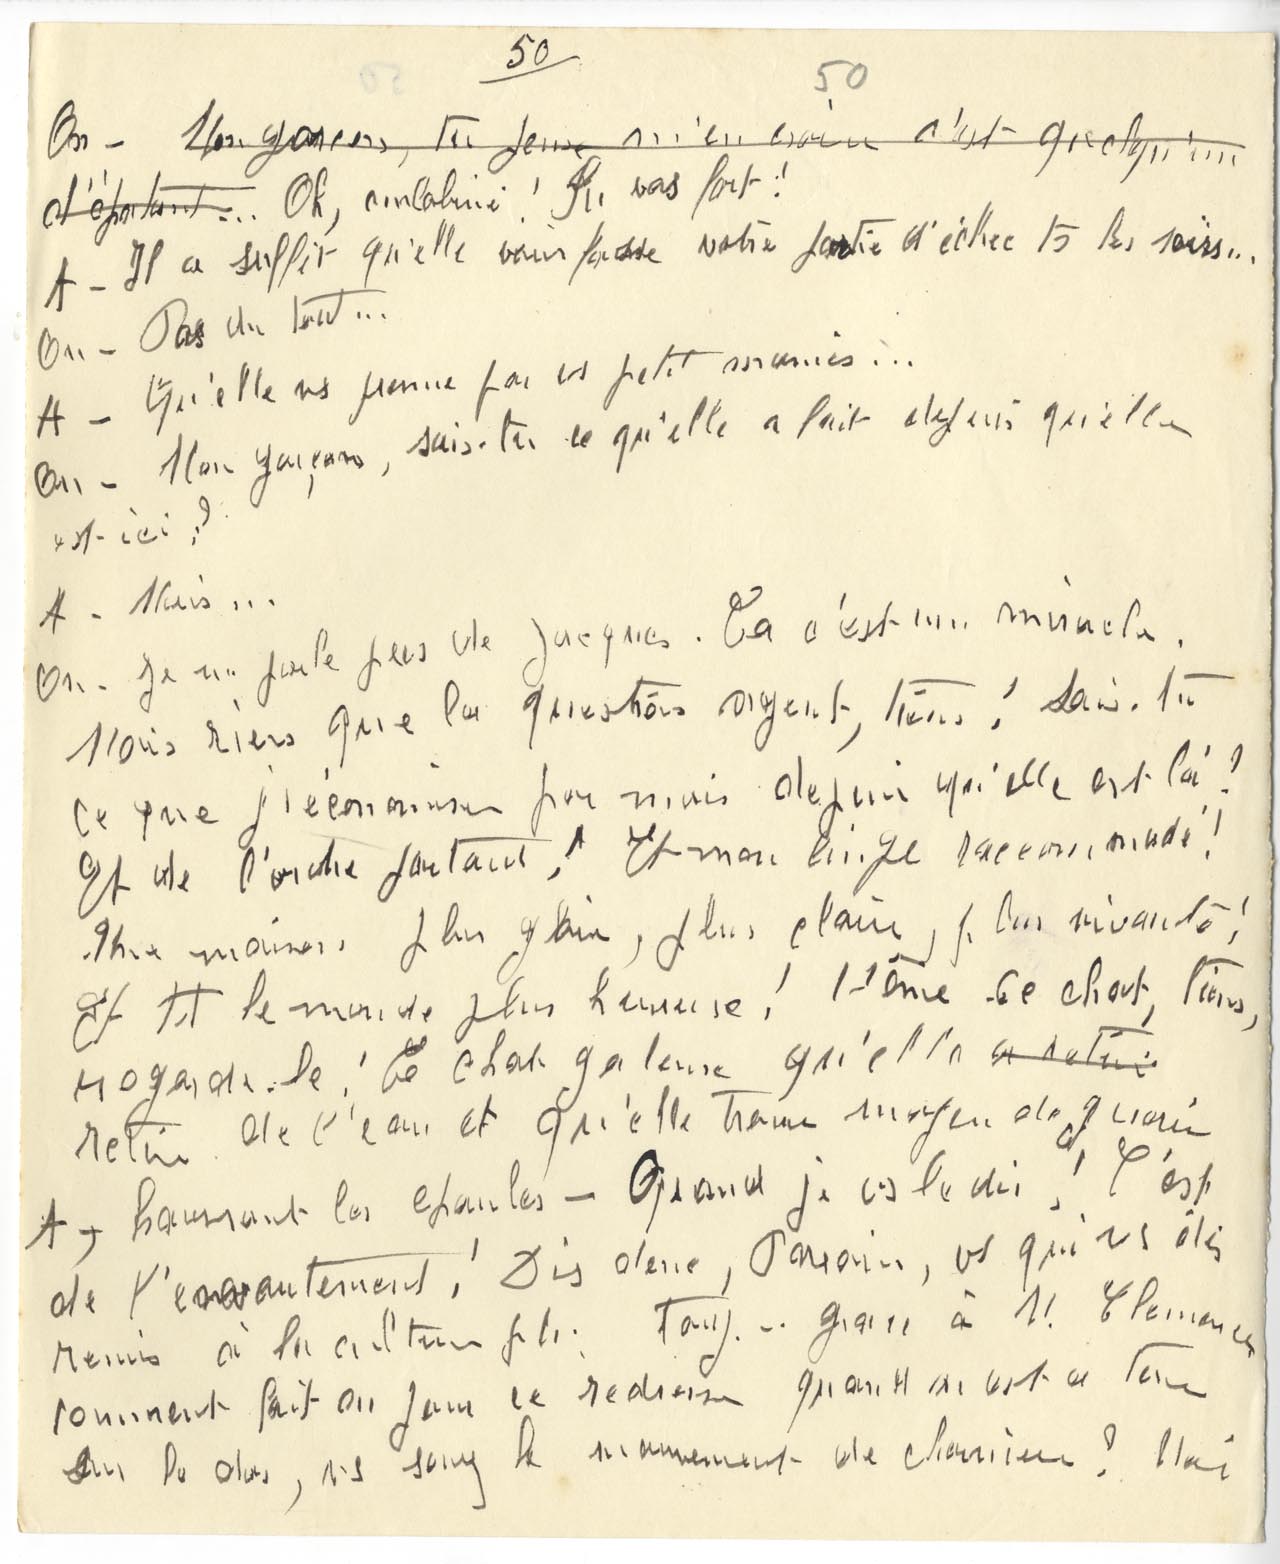 50 50
On - Mon garçon, tu peux m'en croire c'est quelqu'un
d'épatant... Oh, ! Tu vas fort!
A - Il a suffit qu'elle vous fasse votre partie d'échec ts les soirs...
On - Pas du tout...
A - Qu'elle vs prenne par vs petit manies...
On - Mon garçon, sais-tu ce qu'elle a fait depuis qu'elle
est ici?
A - Mais...
On - Je ne parle pas de Jacques. Ca c'est un miracle.
Mais rien que la question argent, tiens! Sais-tu
ce que j'économise par mois depuis qu'elle est là?
Et de l'ordre partout! Et mon linge raccommodé!
Une maison plus gaie, plus claire, plus vivante!
Et tt le monde plus heureuse! Même ce chat, tiens,
regarde-le! Ce chat galeux qu'elle a retiré
retire de l'eau et qu'elle trouve moyen de guérir
A, haussant les epaules - Quand je vs le dis! C'est
de l'envoutement! Dis donc, Parrain, vs qui vs êtes
remis à la culture ph. grace à M. Clemence
comment fait on pour ce redresse quand on est a terre
sur le dos, vs savez le mouvement de ? Moi